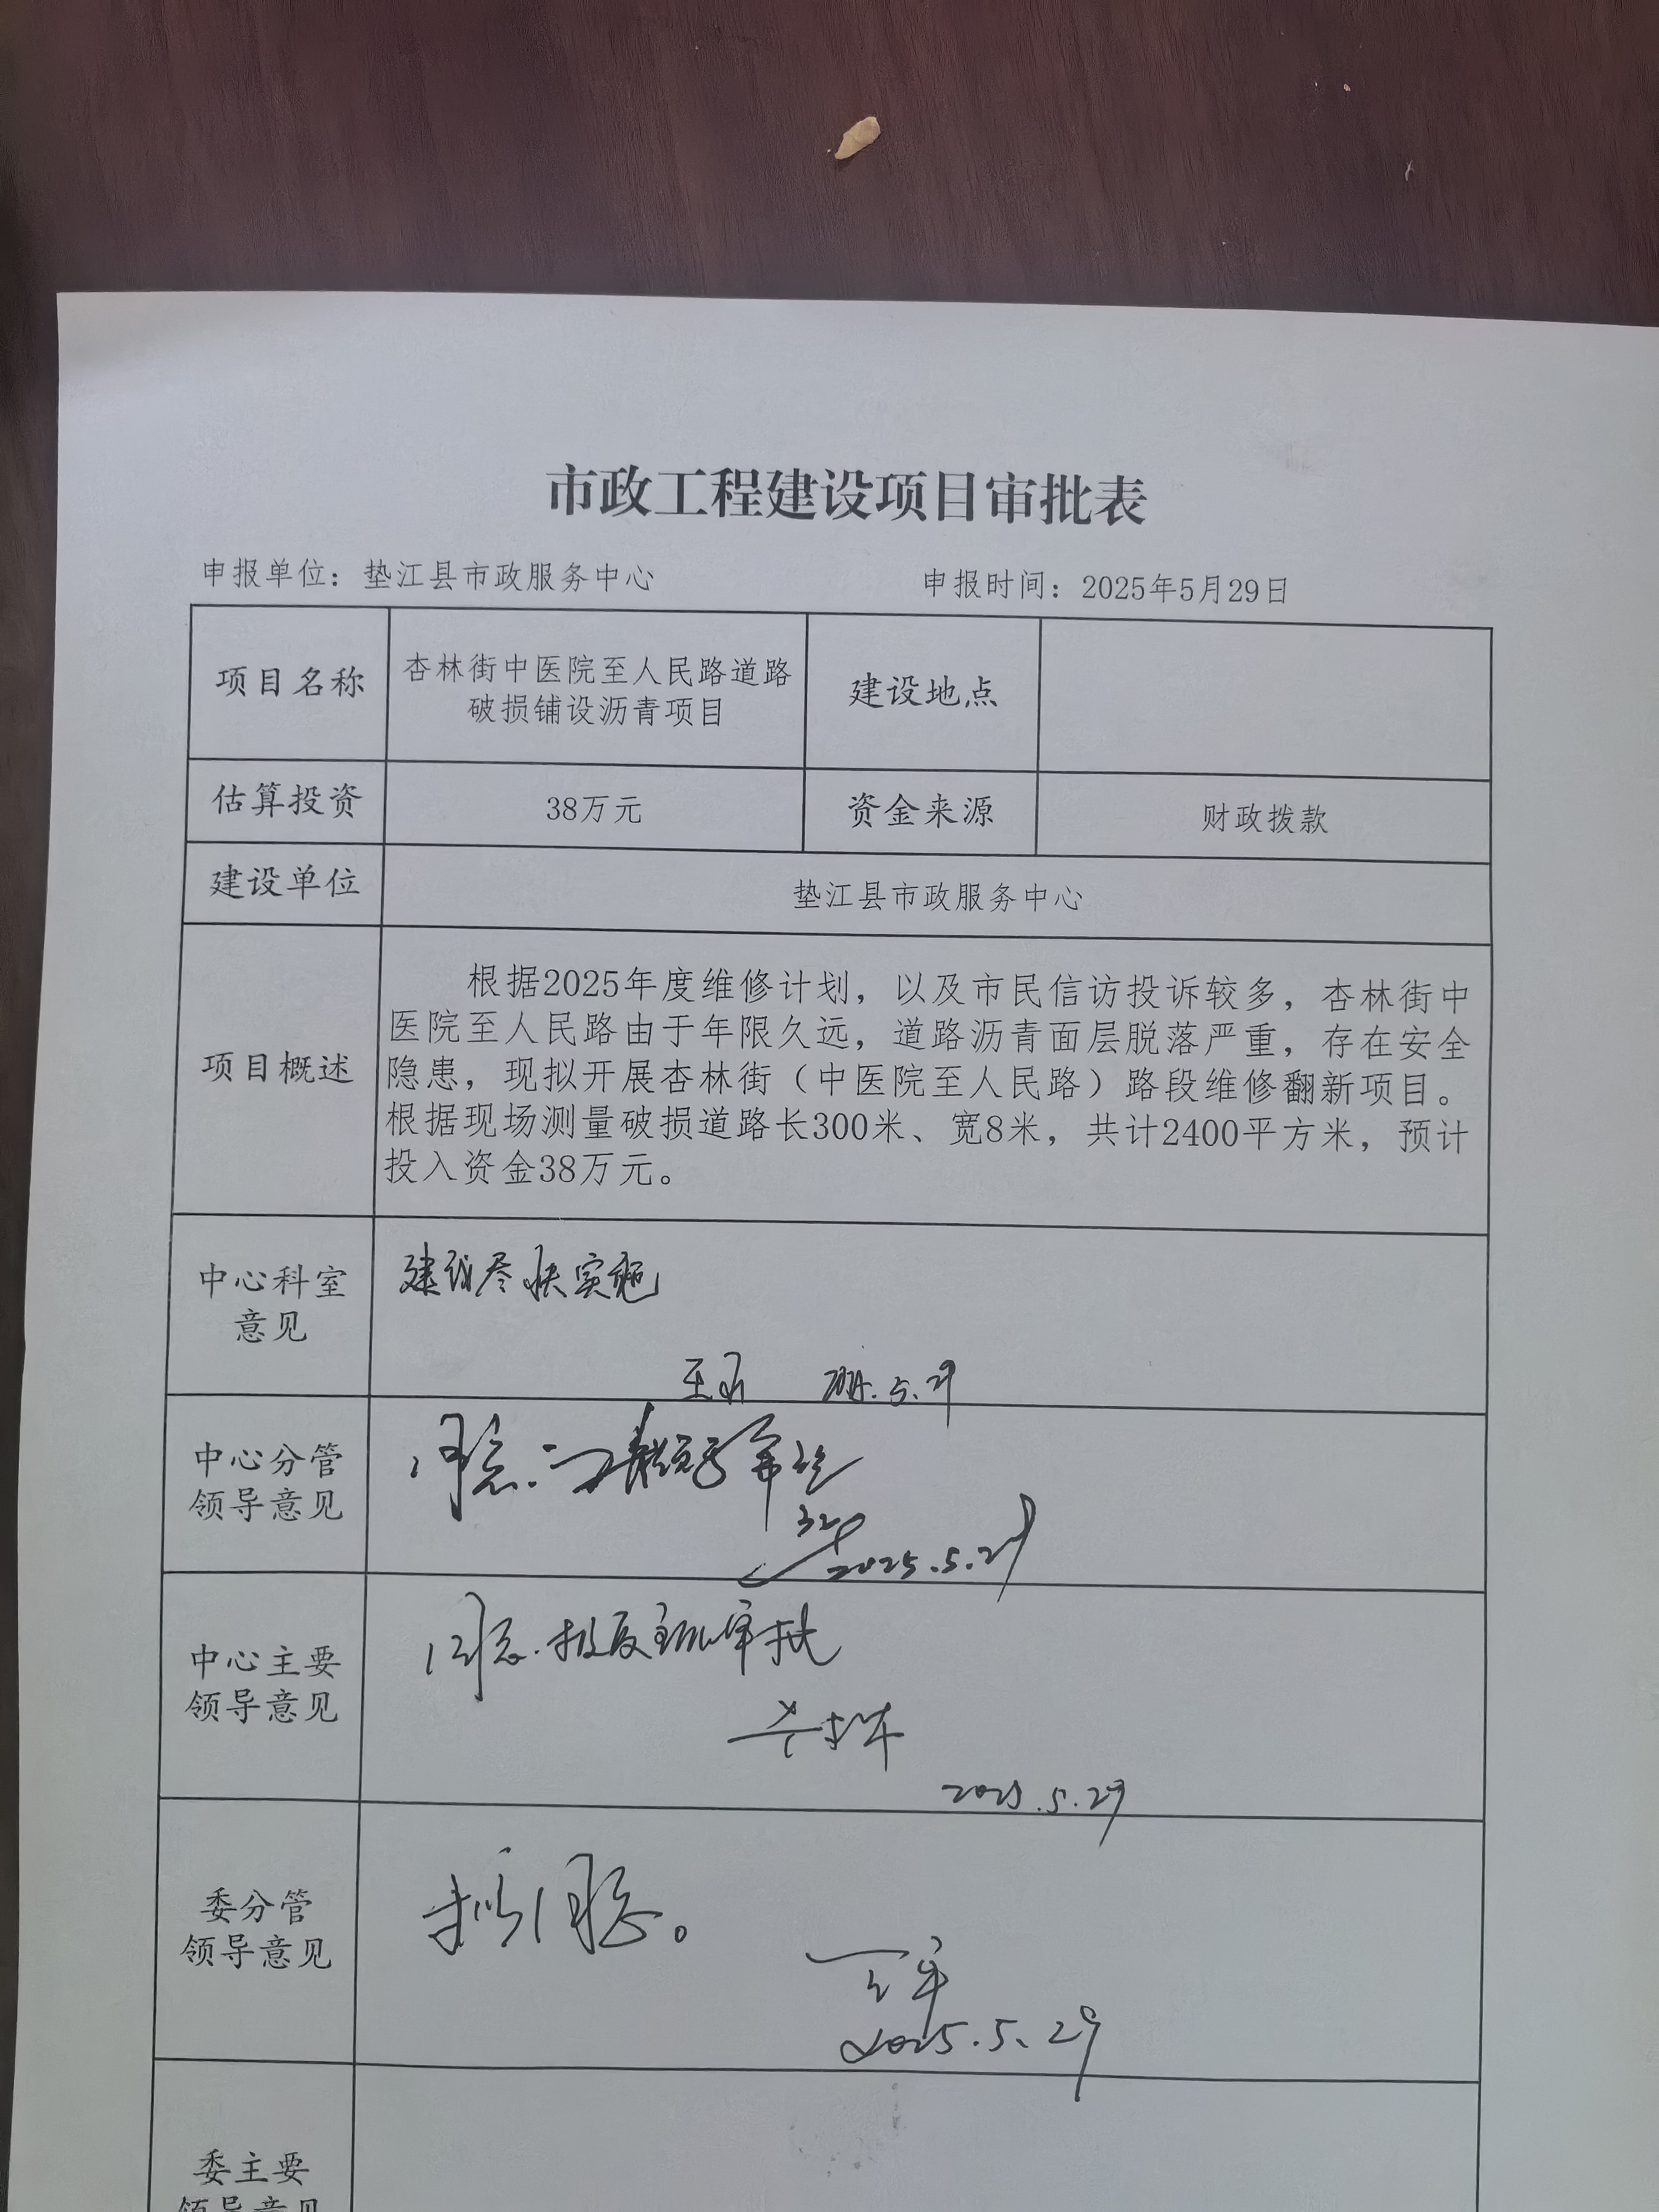 市政工程建设项目审批表
申报单位：垫江县市政服务中心 申报时间：2025年5月29日
项目名称
杏林街中医院至人民路道路
破损铺设沥青项目
建设地点
估算投资 38万元 资金来源 财政拨款
建设单位 垫江县市政服务中心
项目概述
根据2025年度维修计划，以及市民信访投诉较多，杏林街中
医院至人民路由于年限久远，道路沥青面层脱落严重，存在安全
隐患，现拟开展杏林街（中医院至人民路）路段维修翻新项目。
根据现场测量破损道路长300米、宽8米，共计2400平方米，预计
投入资金38万元。
中心科室
意见
建议尽快实施
2025.5.29
中心分管
领导意见
同意
2025.5.29
中心主要
领导意见
同意.报委主任审批
2025.5.29
委分管
领导意见
拟同意。
2025.5.29
委主要
领导意见